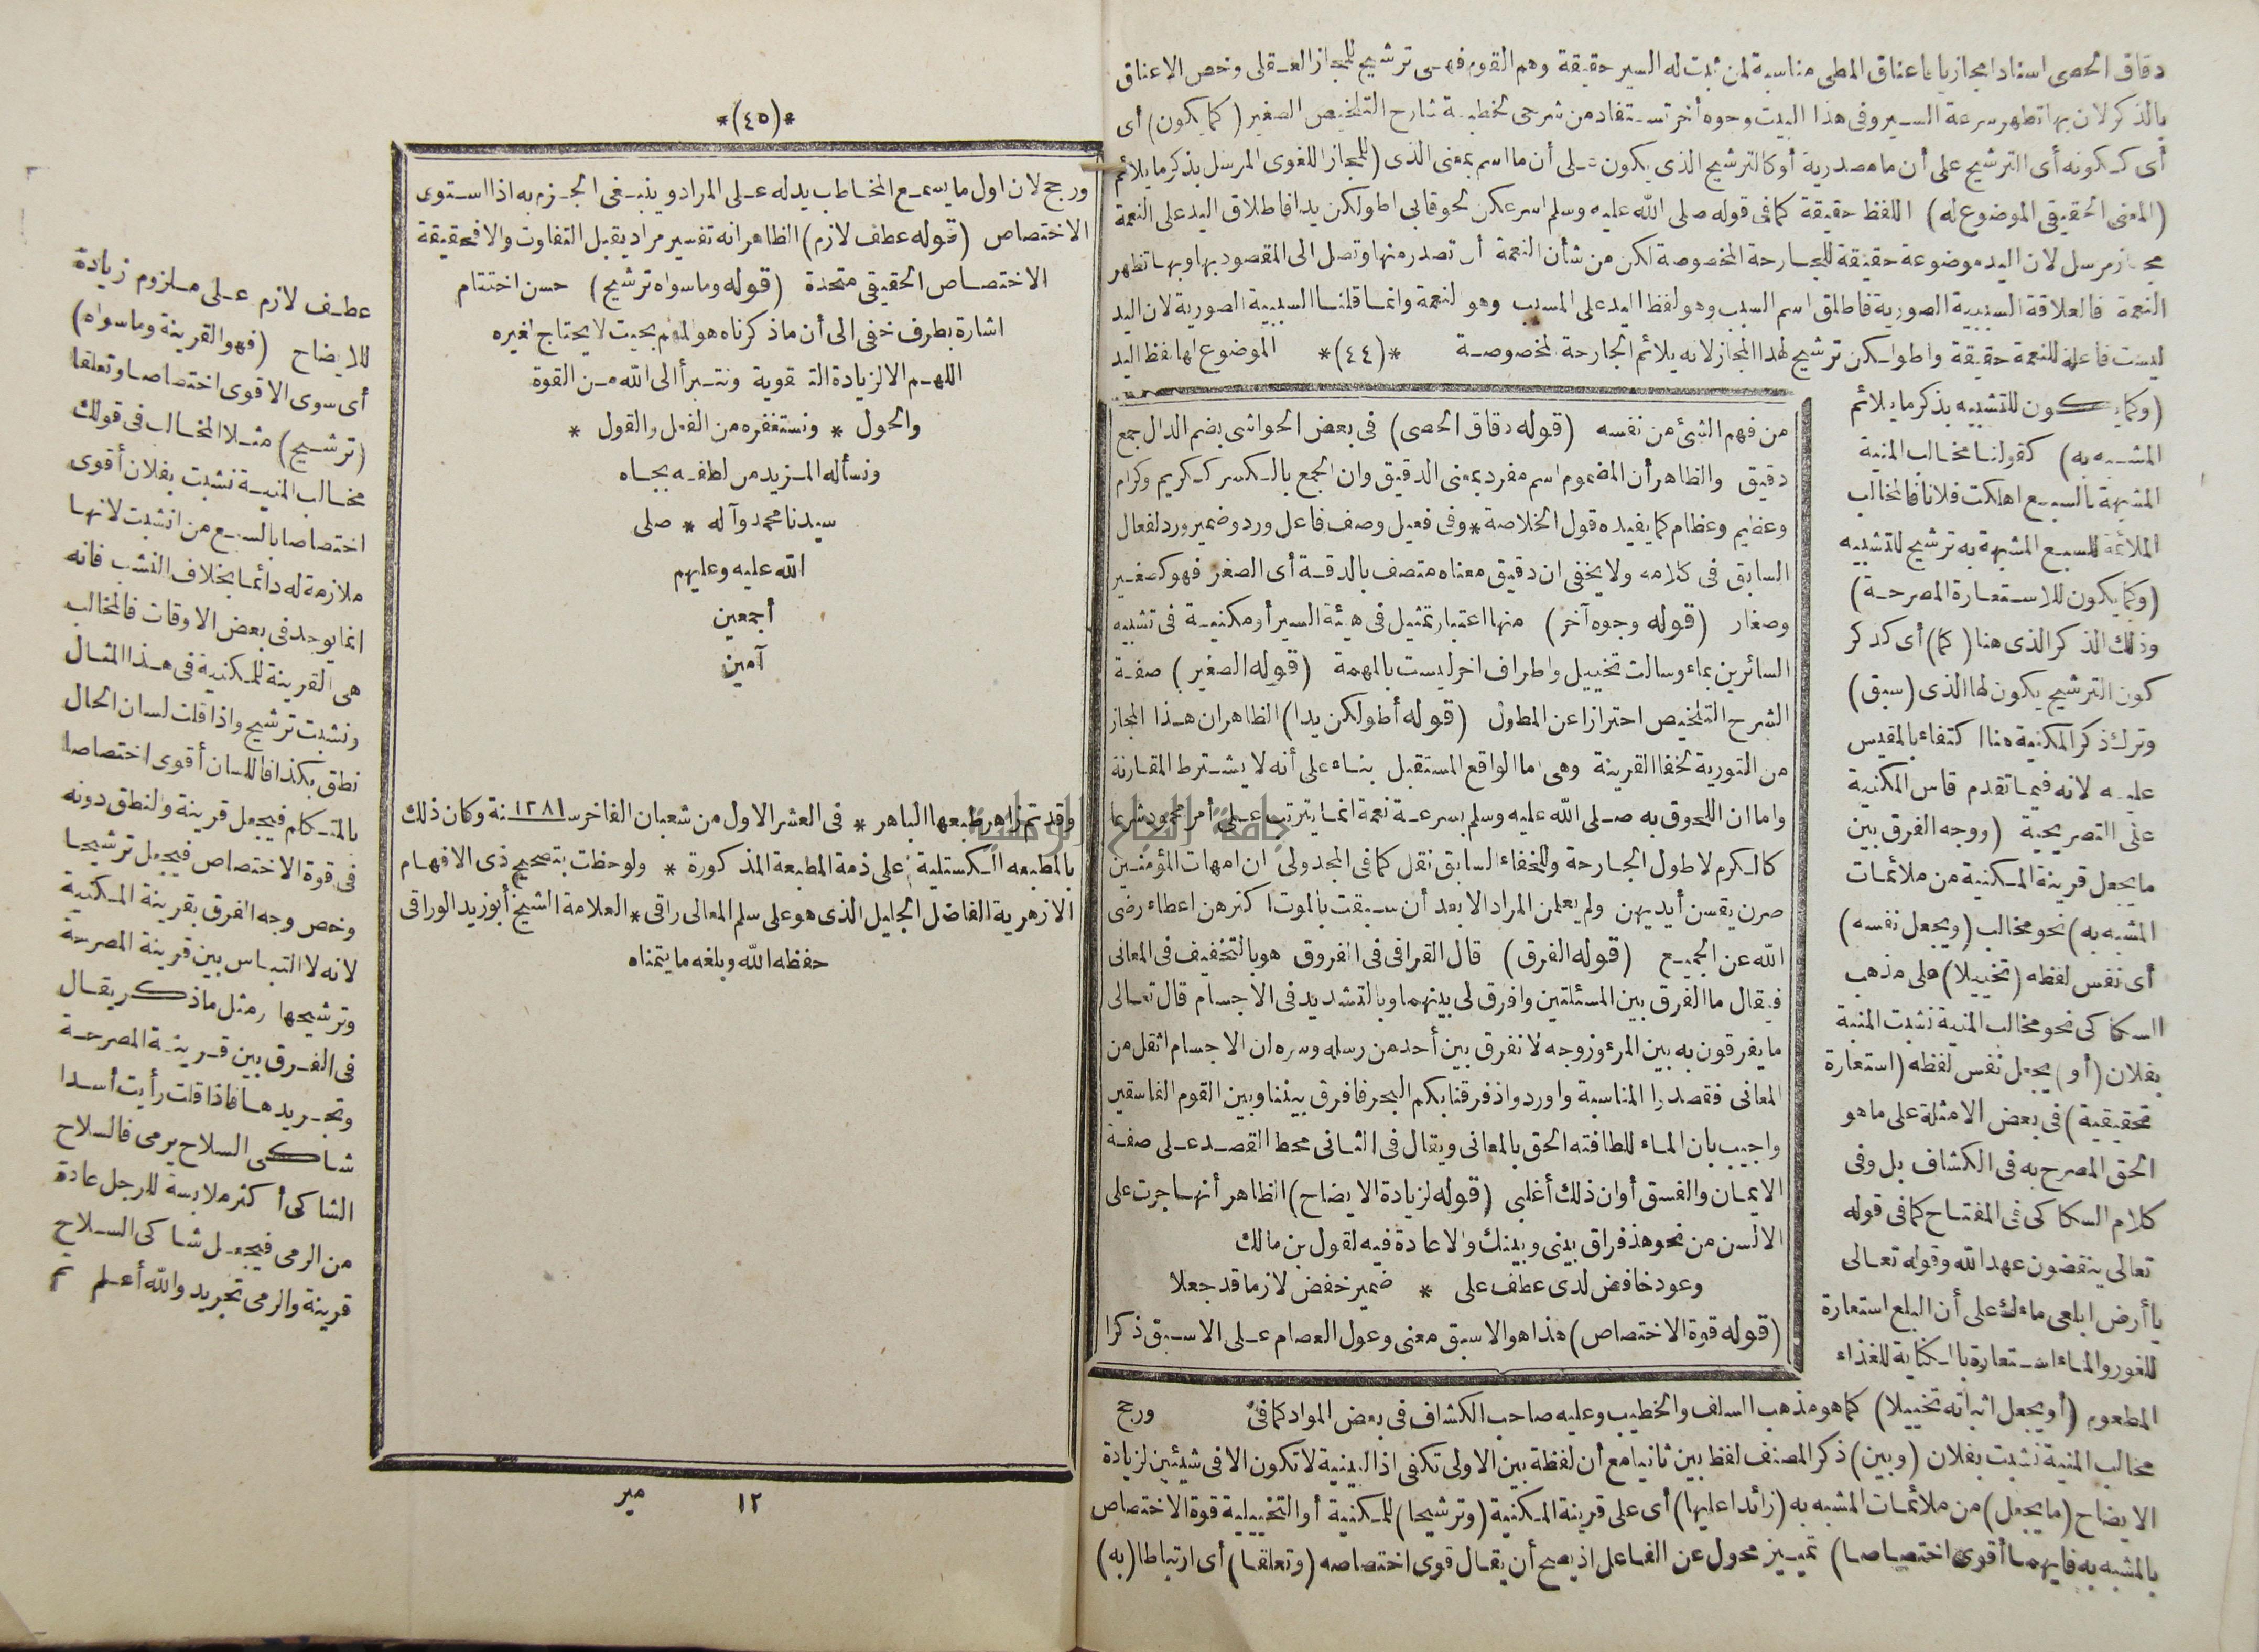 دقاق الحصى اسنادا مجازيا باعناق المطى مناسبة لمن ثبت له السير حقيقة وهم القوم فهى ترشيح للمجاز العقلى وخص الاعناق
بالذكر لان بها تظهر سرعة السير وفى هذا البيت وجوه أخر تستفاد من شرحى لخطبة شارح التلخيص الصغير (كما يكون) أى
أى ككونه أى الترشيح على أن ما مصدرية أو كالترشيح الذى يكون على أن ما اسم بمعنى الذى (للمجاز اللغوى المرسل بذكر ما يلائم
(المعنى الحقيقى الموضوع له) اللفظ حقيقة كما فى قوله صلى الله عليه وسلم اسرعكن لحوقا بى اطولكن يدا فاطلاق اليد على النعمة
مجاز مرسل لان اليد موضوعة حقيقة للجارحة المخصوصة لكن من شأن النعمة أن تصدر منها وتصل الى المقصود بها وبها تظهر
النعمة فالعلاقة السببية الصورية فاطلق اسم السبب وهو لفظ اليد على المسبب وهو النعمة وانما قلنا السببية الصورية لان اليد
ليست فاعلة للنعمة حقيقة واطولكن ترشيح لهذا المجاز لانه يلائم الجارحة المخصوصة *(٤٤)* الموضوع لها لفظ اليد
(وكما يكون للتشبيه بذكر ما يلائم
المشبه به) كقولنا مخالب المنية
المشبهة بالسبع اهلكت فلانا فالمخالب
الملائمة للسبع المشبهة به ترشيح للتشبيه
(وكما يكون للاستعارة المصرحة)
وذلك الذكر الذى هنا (كما) أى كذكر
كون الترشيح يكون لها الذى (سبق)
وترك ذكر المكنية هنا اكتفاء بالمقيس
عليه لانه فيما تقدم قاس المكنية
على التصريحية (ووجه الفرق بين
ما يجعل قرينة المكنية من ملائمات
المشبه به) نحو مخالب (ويجعل نفسه)
أى نفس لفظه (تخييلا) على مذهب
السكاكى نحو مخالب المنية نشبت المنية
بفلان (أو) يجعل نفس لفظه (استعارة
تحقيقية) فى بعض الامثلة على ما هو
الحق المصرح به فى الكشاف بل وفى
كلام السكاكى فى المفتاح كما فى قوله
تعالى ينقضون عهد الله وقوله تعالى
يا أرض ابلعى ماءك على أن البلع استعارة
للغور والماء استعارة بالكناية للغذاء
المطعوم (أو يجعل اثباته تخييلا) كما هو مذهب السلف والخطيب وعليه صاحب الكشاف فى بعض المواد كما فى
مخالب المنية نشبت بفلان (وبين) ذكر المصنف لفظ بين ثانيا مع أن لفظة بين الاولى تكفى اذ البينية لا تكون الا فى شيئين لزيادة
الايضاح (ما يجعل) من ملائمات المشبه به (زائدا عليها) أى على قرينة المكنية (وترشيحا) للمكنية أو التخييلية قوة الاختصاص
بالمشبه به فايهما أقوى اختصاصا) تمييز محول عن الفاعل اذ يصح أن يقال قوى اختصاصه (وتعلقا) أى ارتباطا (به)
من فهم الشئ من نفسه (قوله دقاق الحصى) فى بعض الحواشى بضم الدال جمع
دقيق والظاهر أن المضموم اسم مفرد بمعنى الدقيق وان الجمع بالكسر ككريم وكرام
وعظيم وعظام كما يفيده قول الخلاصة * وفى فعيل وصف فاعل ورد وضمير ورد لفعال
السابق فى كلامه ولا يخفى ان دقيق معناه متصف بالدقة أى الصغر فهو كصغير
وصغار (قوله وجوه آخر) منها اعتبار تمثيل فى هيئة السير أو مكنية فى تشبيه
السائرين بماء وسالت تخييل واطراف اخر ليست بالمهمة (قوله الصغير) صفة
الشرح التلخيص احترازا عن المطول (قوله أطولكن يدا) الظاهر ان هذا المجاز
من التورية لخفا القرينة وهى اما الواقع المستقبل بناء على أنه لا يشترط المقارنة
واما ان اللحوق به صلى الله عليه وسلم بسرعة نعمة انما يترتب على أمر محمود شرعا
كالكرم لا طول الجارحة وللخفاء السابق نقل كما فى المجدولى ان امهات المؤمنين
صرن يقسن أيديهن ولم يعلمن المراد الا بعد أن سبقت بالموت اكثرهن اعطاء رضى
الله عن الجميع (قوله الفرق) قال القرافى فى الفروق هو بالتخفيف فى المعانى
فيقال ما الفرق بين المسئلتين وافرق لى بينهما وبالتشديد فى الاجسام قال تعالى
ما يفرقون به بين المرء وزوجه لا نفرق بين أحد من رسله وسره ان الاجسام اثقل من
المعانى فقصدوا المناسبة واوردوا ذفرقنا بكم البحر فافرق بيننا وبين القوم الفاسقين
واجيب بان الماء للطافته الحق بالمعانى ويقال فى الثانى محط القصد على صفة
الايمان والفسق أو ان ذلك أغلبى (قوله لزيادة الايضاح) الظاهر أنها جرت على
الالسن من نحو هذا فراق بينى وبينك والاعادة فيه لقول بن مالك
وعود خافض لدى عطف على * ضمير خفض لازما قد جعلا
(قوله قوة الاختصاص) هذا هو الاسبق معنى وعول العصام على الاسبق ذكرا
ورجح
*(٤٥)*
ورجح لان اول ما يسمع المخاطب يدله على المراد وينبغى الجزم به اذا استوى
الاختصاص (قوله عطف لازم) الظاهر انه تفسير مراد يقبل التفاوت والا فحقيقة
الاختصاص الحقيقى متحدة (قوله وما سواه ترشيح) حسن اختتام
اشارة بطرف خفى الى أن ما ذكرناه هو المهم بحيث لا يحتاج لغيره
اللهم الا لزيادة التقوية ونتبرأ الى الله من القوة
والحول * ونستغفره من الفعل والقول *
ونسأله المزيد من لطفه بجاه
سيدنا محمد وآله * صلى
الله عليه وعليهم
أجمعين
آمين
وقد تم زاهر طبعها الباهر * فى العشر الاول من شعبان الفاخر سـ ١٢٨١ ـنة وكان ذلك
بالمطبعه الكستلية * على ذمة المطبعة المذكورة * ولوحظت بتصحيح ذى الافهام
الازهرية الفاضل الجليل الذى هو على سلم المعالى راقى * العلامة الشيخ أبو زيد الوراقى
حفظه الله وبلغه ما يتمناه
عطف لازم على ملزوم زيادة
للايضاح (فهو القرينة وما سواه)
أى سوى الاقوى اختصاصا وتعلقا
(ترشيح) مثلا المخالب فى قولك
مخالب المنية نشبت بفلان أقوى
اختصاصا بالسبع من انشبت لانها
ملازمة له دائما بخلاف النشب فانه
انما يوجد فى بعض الاوقات فالمخالب
هى القرينة للمكنية فى هذا المثال
ونشبت ترشيح واذا قلت لسان الحال
نطق بكذا فاللسان أقوى اختصاصا
بالمتكلم فيجعل قرينة والنطق دونه
فى قوة الاختصاص فيجعل ترشيحا
وخص وجه الفرق بقرينة المكنية
لانه لا التباس بين قرينة المصرحة
وترشيحها ومثل ما ذكر يقال
فى الفرق بين قرينة المصرحة
وتجريدها فاذا قلت رأيت أسدا
شاكى السلاح يرمى فالسلاح
الشاكى أكثر ملابسة للرجل عادة
من الرمى فيجعل شاكى السلاح
قرينة والرمى تجريد والله أعلم تم
١٢ مير
جامعة النجاح الوطنية